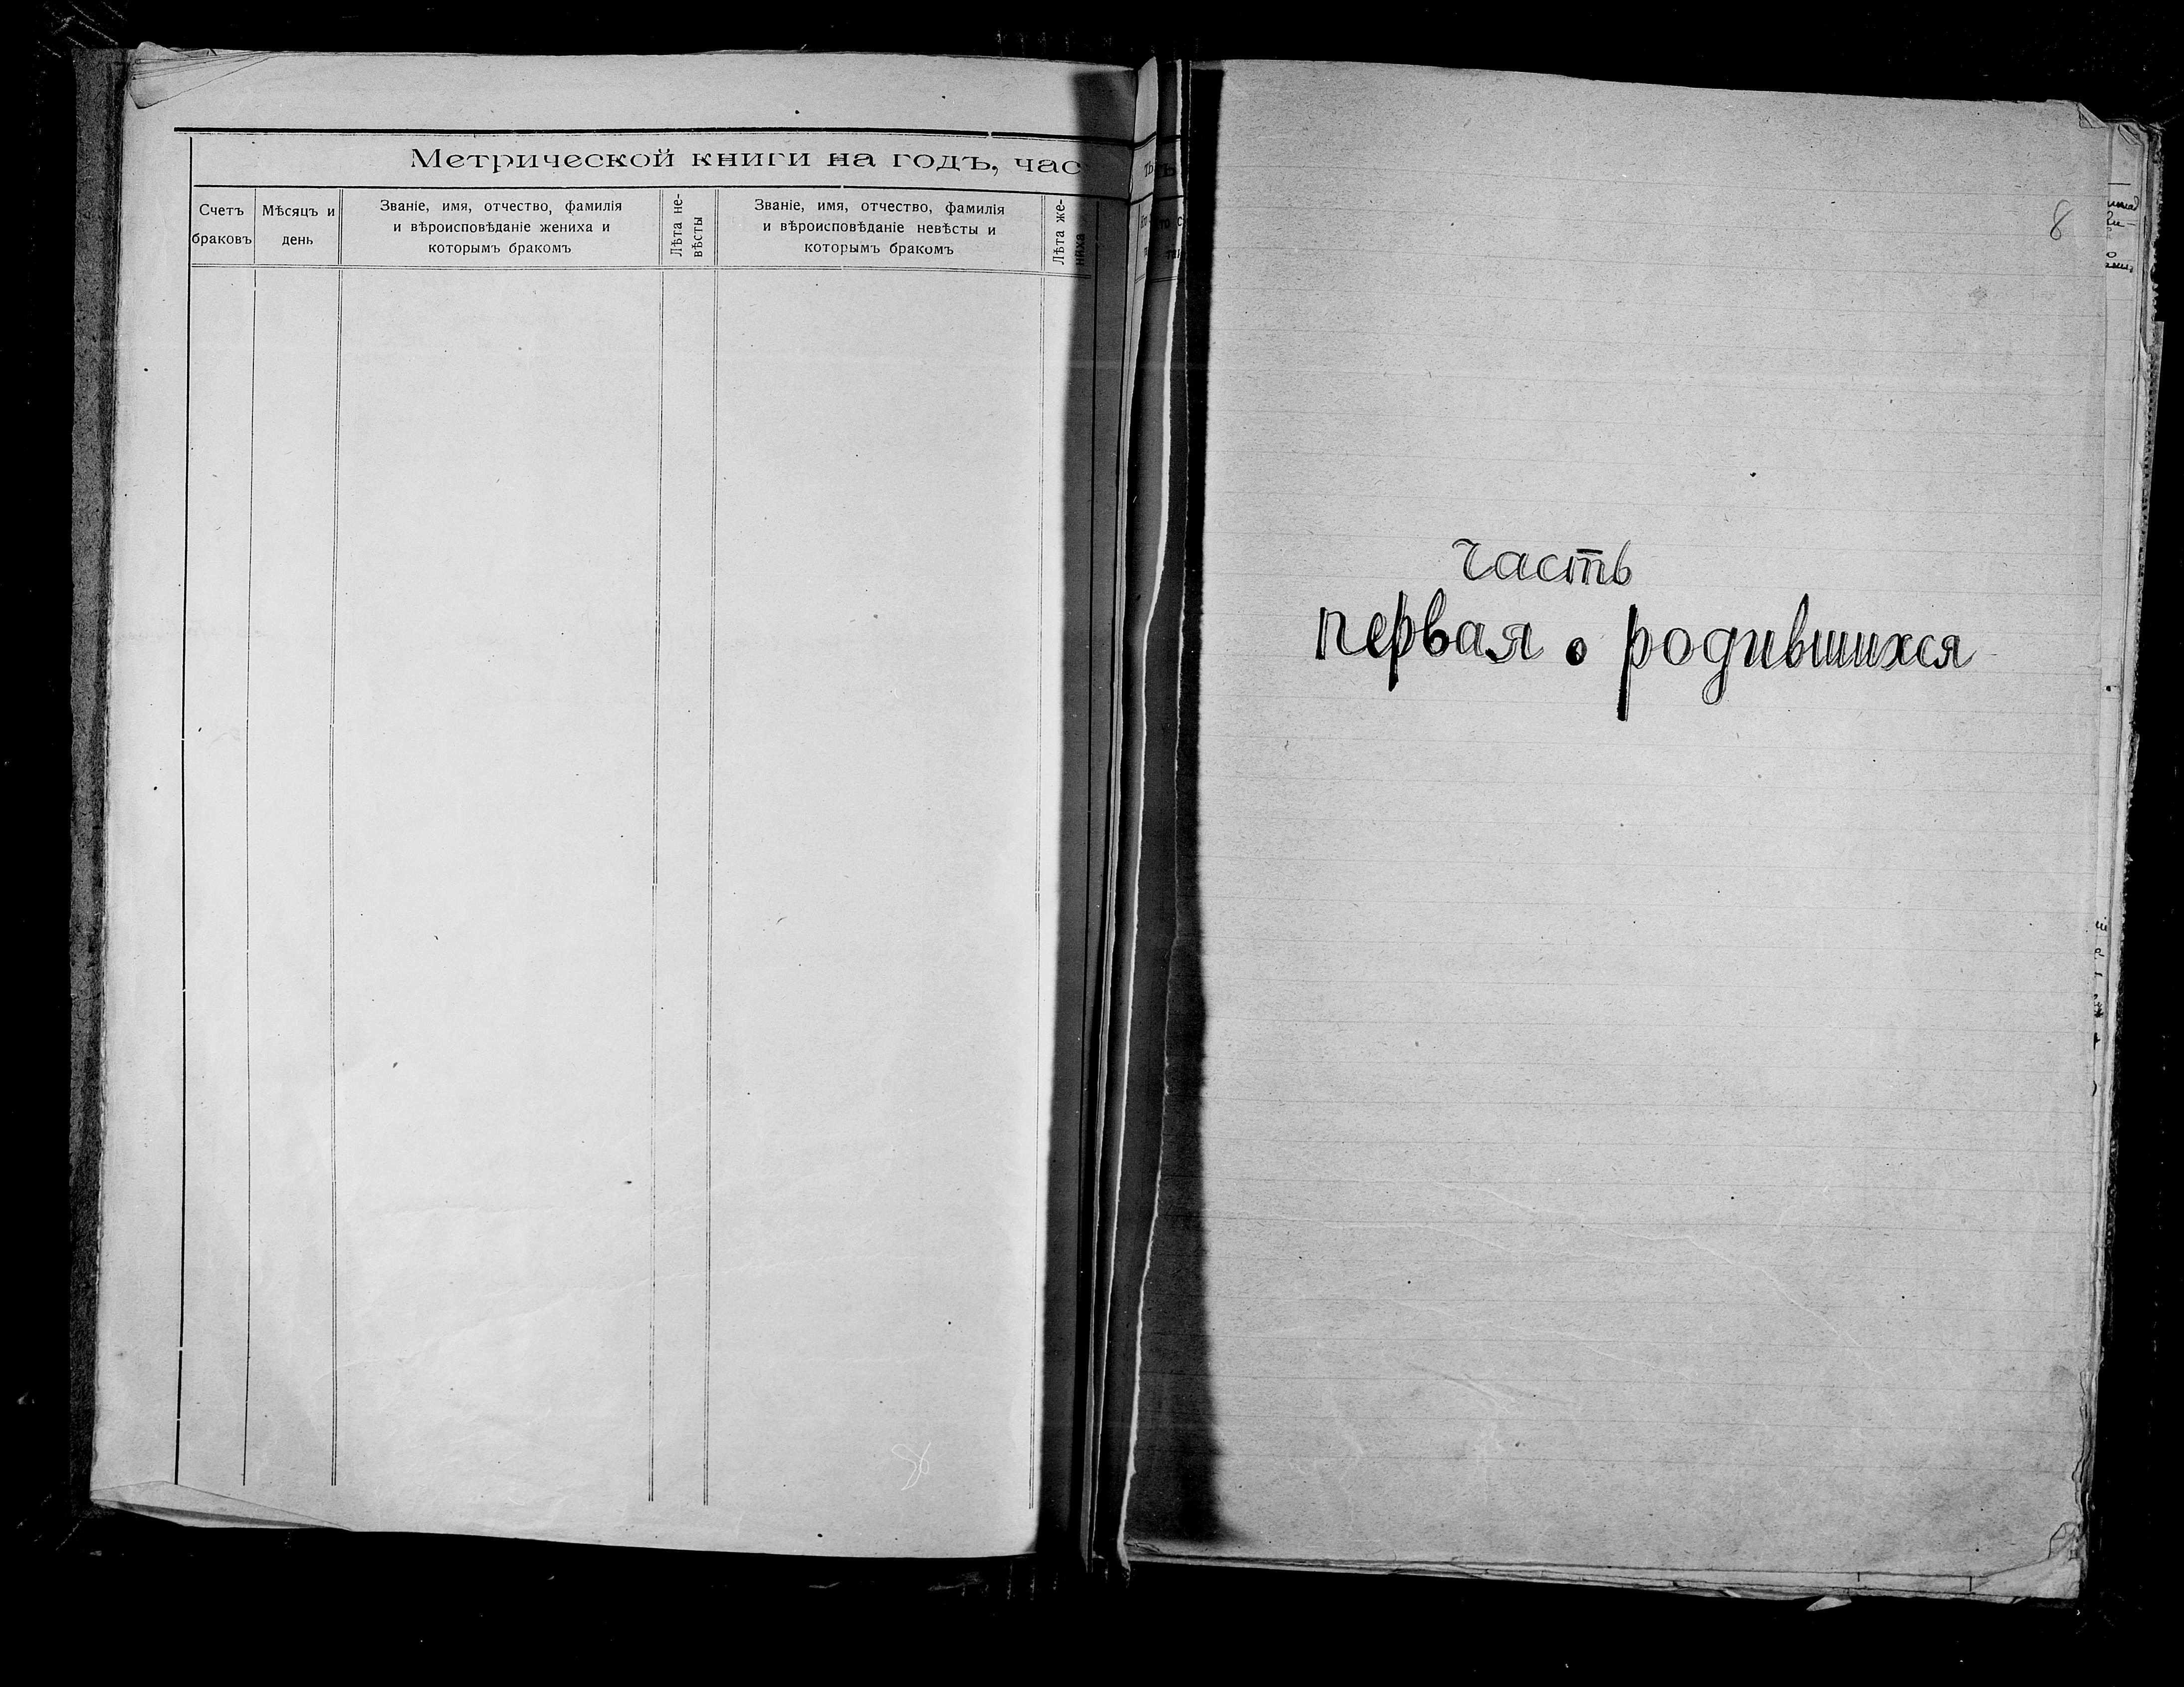 Метрической книги на годъ, час
Счетъ
браковъ
Мѣсяцъ и
день
Званіе, имя, отчество, фамилія
и вѣроисповѣданіе жениха и
которымъ бракомъ
Лѣта не-
вѣсты
Званіе, имя, отчество, фамилія
и вѣроисповѣданіе невѣсты и
которымъ бракомъ
Лѣта же-
ниха
8
часть
первая о родившихся